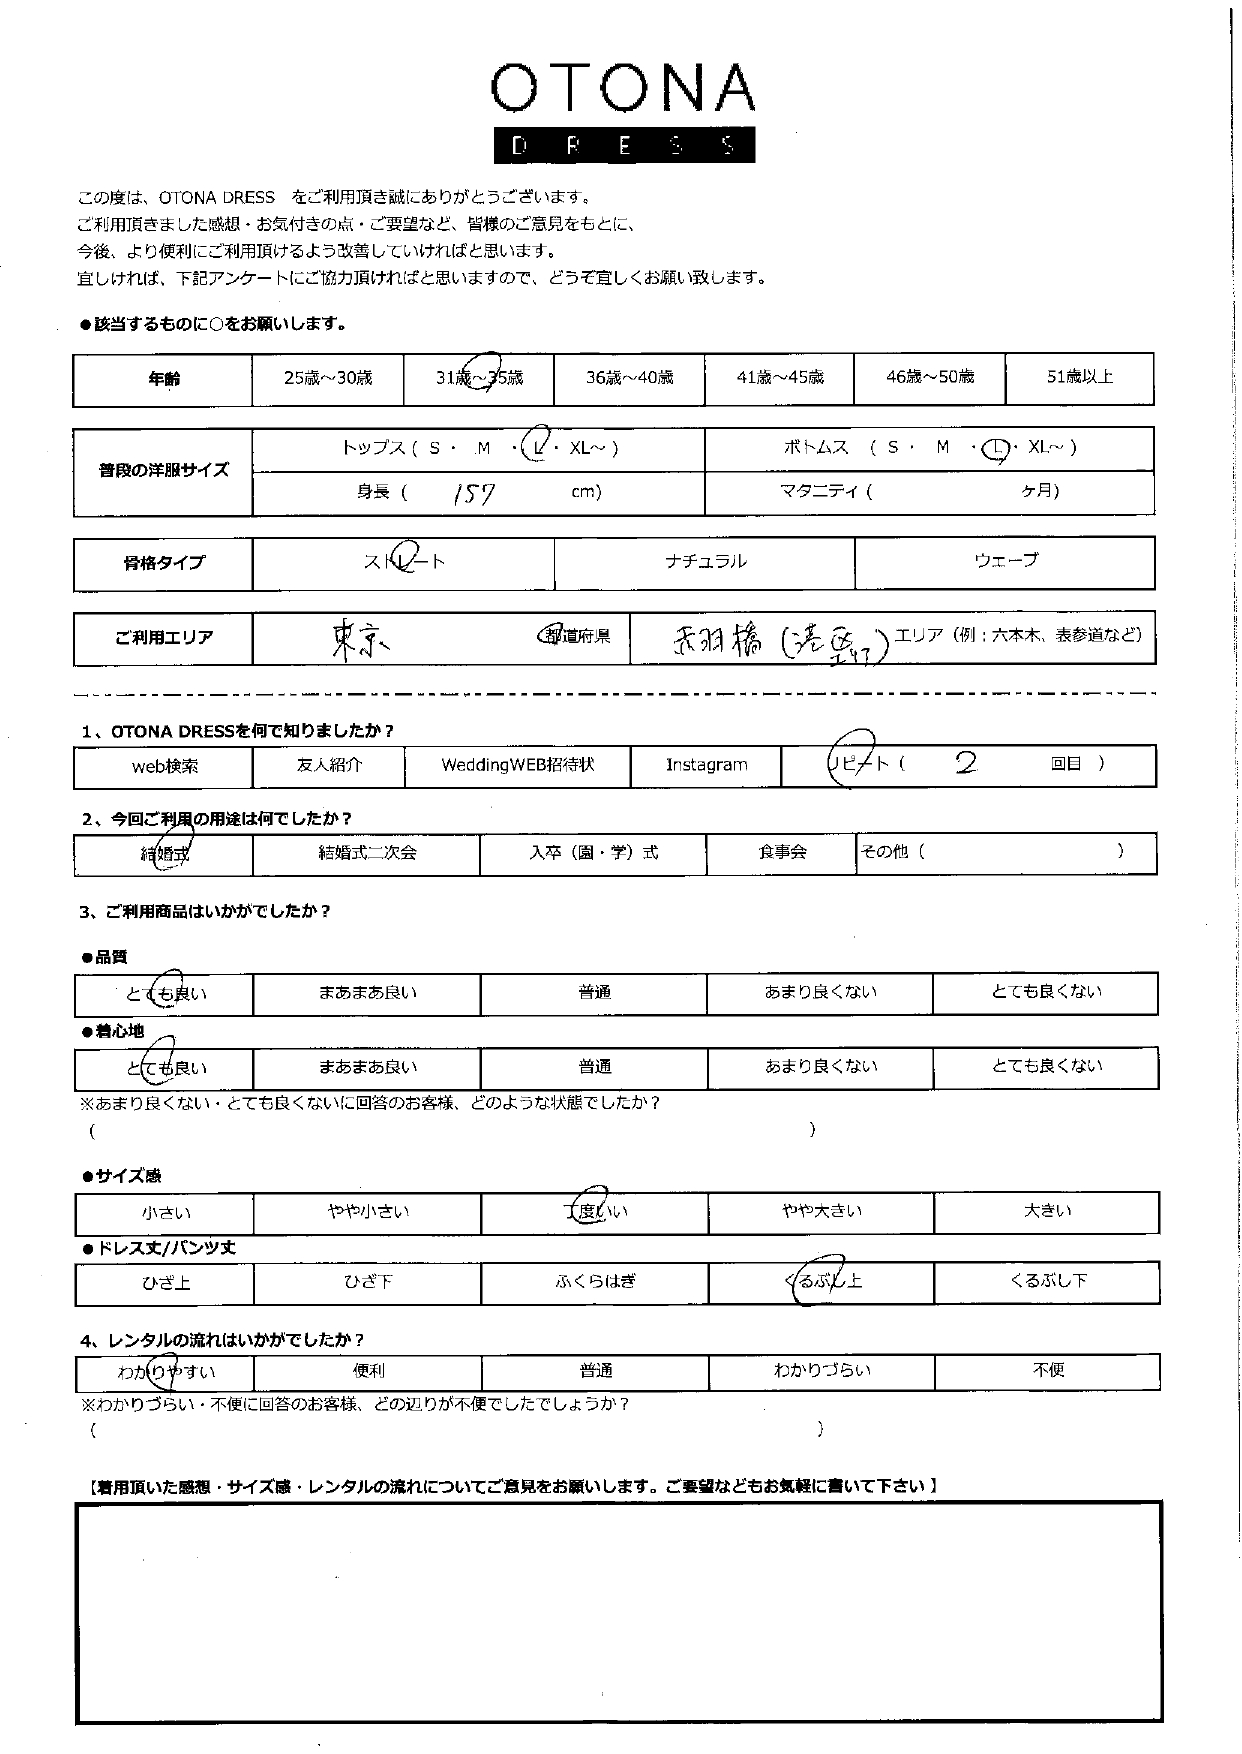 OTONA
DRESS
この度は、OTONA DRESS をご利用頂き誠にありがとうございます。
ご利用頂きました感想・お気付きの点・ご要望など、皆様のご意見をもとに、
今後、より便利にご利用頂けるよう改善していければと思います。
宜しければ、下記アンケートにご協力頂ければと思いますので、どうぞ宜しくお願い致します。
●該当するものに○をお願いします。
年齢 25歳～30歳 31歳～35歳 36歳～40歳 41歳～45歳 46歳～50歳 51歳以上
普段の洋服サイズ トップス ( S ・ M ・ L ・ XL～ ) ボトムス ( S ・ M ・ L ・ XL～ )
身長 ( 157 cm) マタニティ ( ヶ月)
骨格タイプ ストレート ナチュラル ウェーブ
ご利用エリア 東京 都道府県 赤羽橋 (港区) エリア（例：六本木、表参道など）
1、OTONA DRESSを何で知りましたか？
web検索 友人紹介 WeddingWEB招待状 Instagram リピート ( 2 回目 )
2、今回ご利用の用途は何でしたか？
結婚式 結婚式二次会 入卒（園・学）式 食事会 その他 ( )
3、ご利用商品はいかがでしたか？
●品質
とても良い まあまあ良い 普通 あまり良くない とても良くない
●着心地
とても良い まあまあ良い 普通 あまり良くない とても良くない
※あまり良くない・とても良くないに回答のお客様、どのような状態でしたか？
( )
●サイズ感
小さい やや小さい 丁度いい やや大きい 大きい
●ドレス丈/パンツ丈
ひざ上 ひざ下 ふくらはぎ くるぶし上 くるぶし下
4、レンタルの流れはいかがでしたか？
わかりやすい 便利 普通 わかりづらい 不便
※わかりづらい・不便に回答のお客様、どの辺りが不便でしたでしょうか？
( )
【着用頂いた感想・サイズ感・レンタルの流れについてご意見をお願いします。ご要望などもお気軽に書いて下さい】